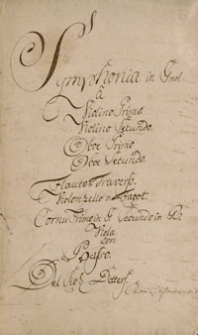 Symphonia in Gmol
à
Violino Primo
Violino Secundo
Oboe Primo
Oboe Secundo
Flauto Traverso
Violonzello e Fagot
Cornu Primo in G Secundo in B
Viola
con
Basso
Del Sig: